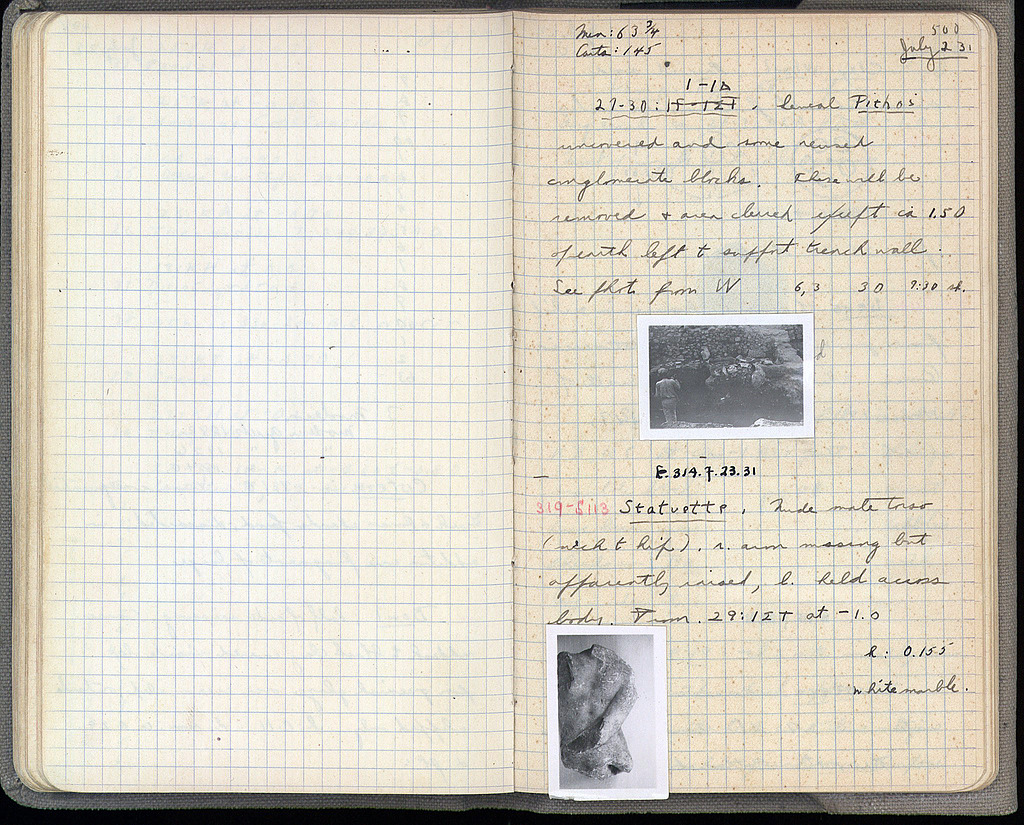 500
Men: 63 3/4
Carts: 145
July 2 31
1-1Δ
27-30: . Several Pithos
uncovered and some reused
conglomerate blocks. These will be
removed & area cleared except ca 1.50
of earth left to support trench wall.
See photo from W 6,3 30 9:30 st.
E. 314. 7. 23. 31
319-S113 Statuette. Nude male torso
(neck to hip). r. arm missing but
apparently raised, l. held across
body. From 29: at -1.0
h: 0.155
White marble.